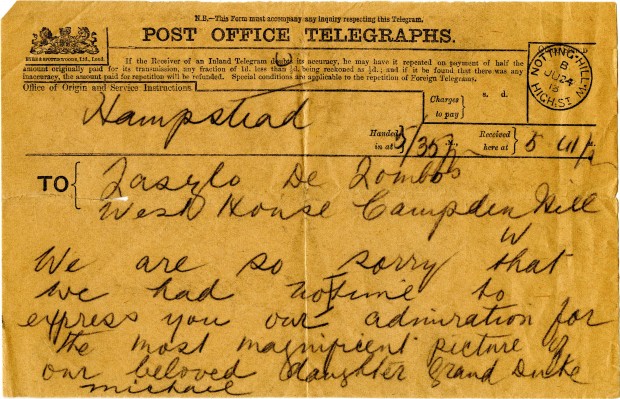 N.B.—This Form must accompany any inquiry respecting this Telegram.
POST OFFICE TELEGRAPHS.
If the Receiver of an Inland Telegram doubts its accuracy, he may have it repeated on payment of half the
amount originally paid for its transmission, any fraction of 1d. less than ½d. being reckoned as ½d.; and if it be found that there was any
inaccuracy, the amount paid for repetition will be refunded. Special conditions are applicable to the repetition of Foreign Telegrams.
Office of Origin and Service Instructions.
NOTTING-HILL W
8
JU 24
HIGH.ST
Hampstead
Charges to pay
s. d.
Handed in at 5/35
Received here at 5
TO
Laszlo De Lombos
West House Campden Hill
W
We are so sorry that
we had no time to
express you our admiration for
the most magnificent picture of
our beloved daughter Grand Duke
michael